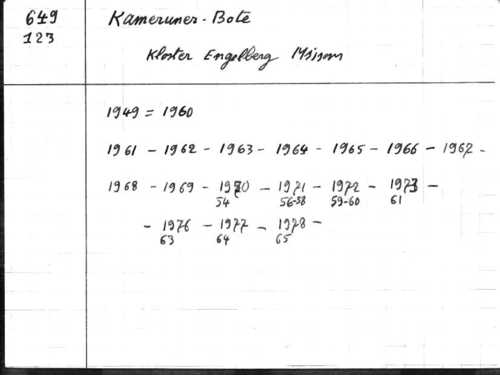 649
123
Kameruner-Bote
Kloster Engelberg Mission
1949 = 1960
1961 - 1962 - 1963 - 1964 - 1965 - 1966 - 1967 -
1968 - 1969 - 1970 - 1971 - 1972 - 1973 -
54 56-58 59-60 61
- 1976 - 1977 - 1978 -
63 64 65